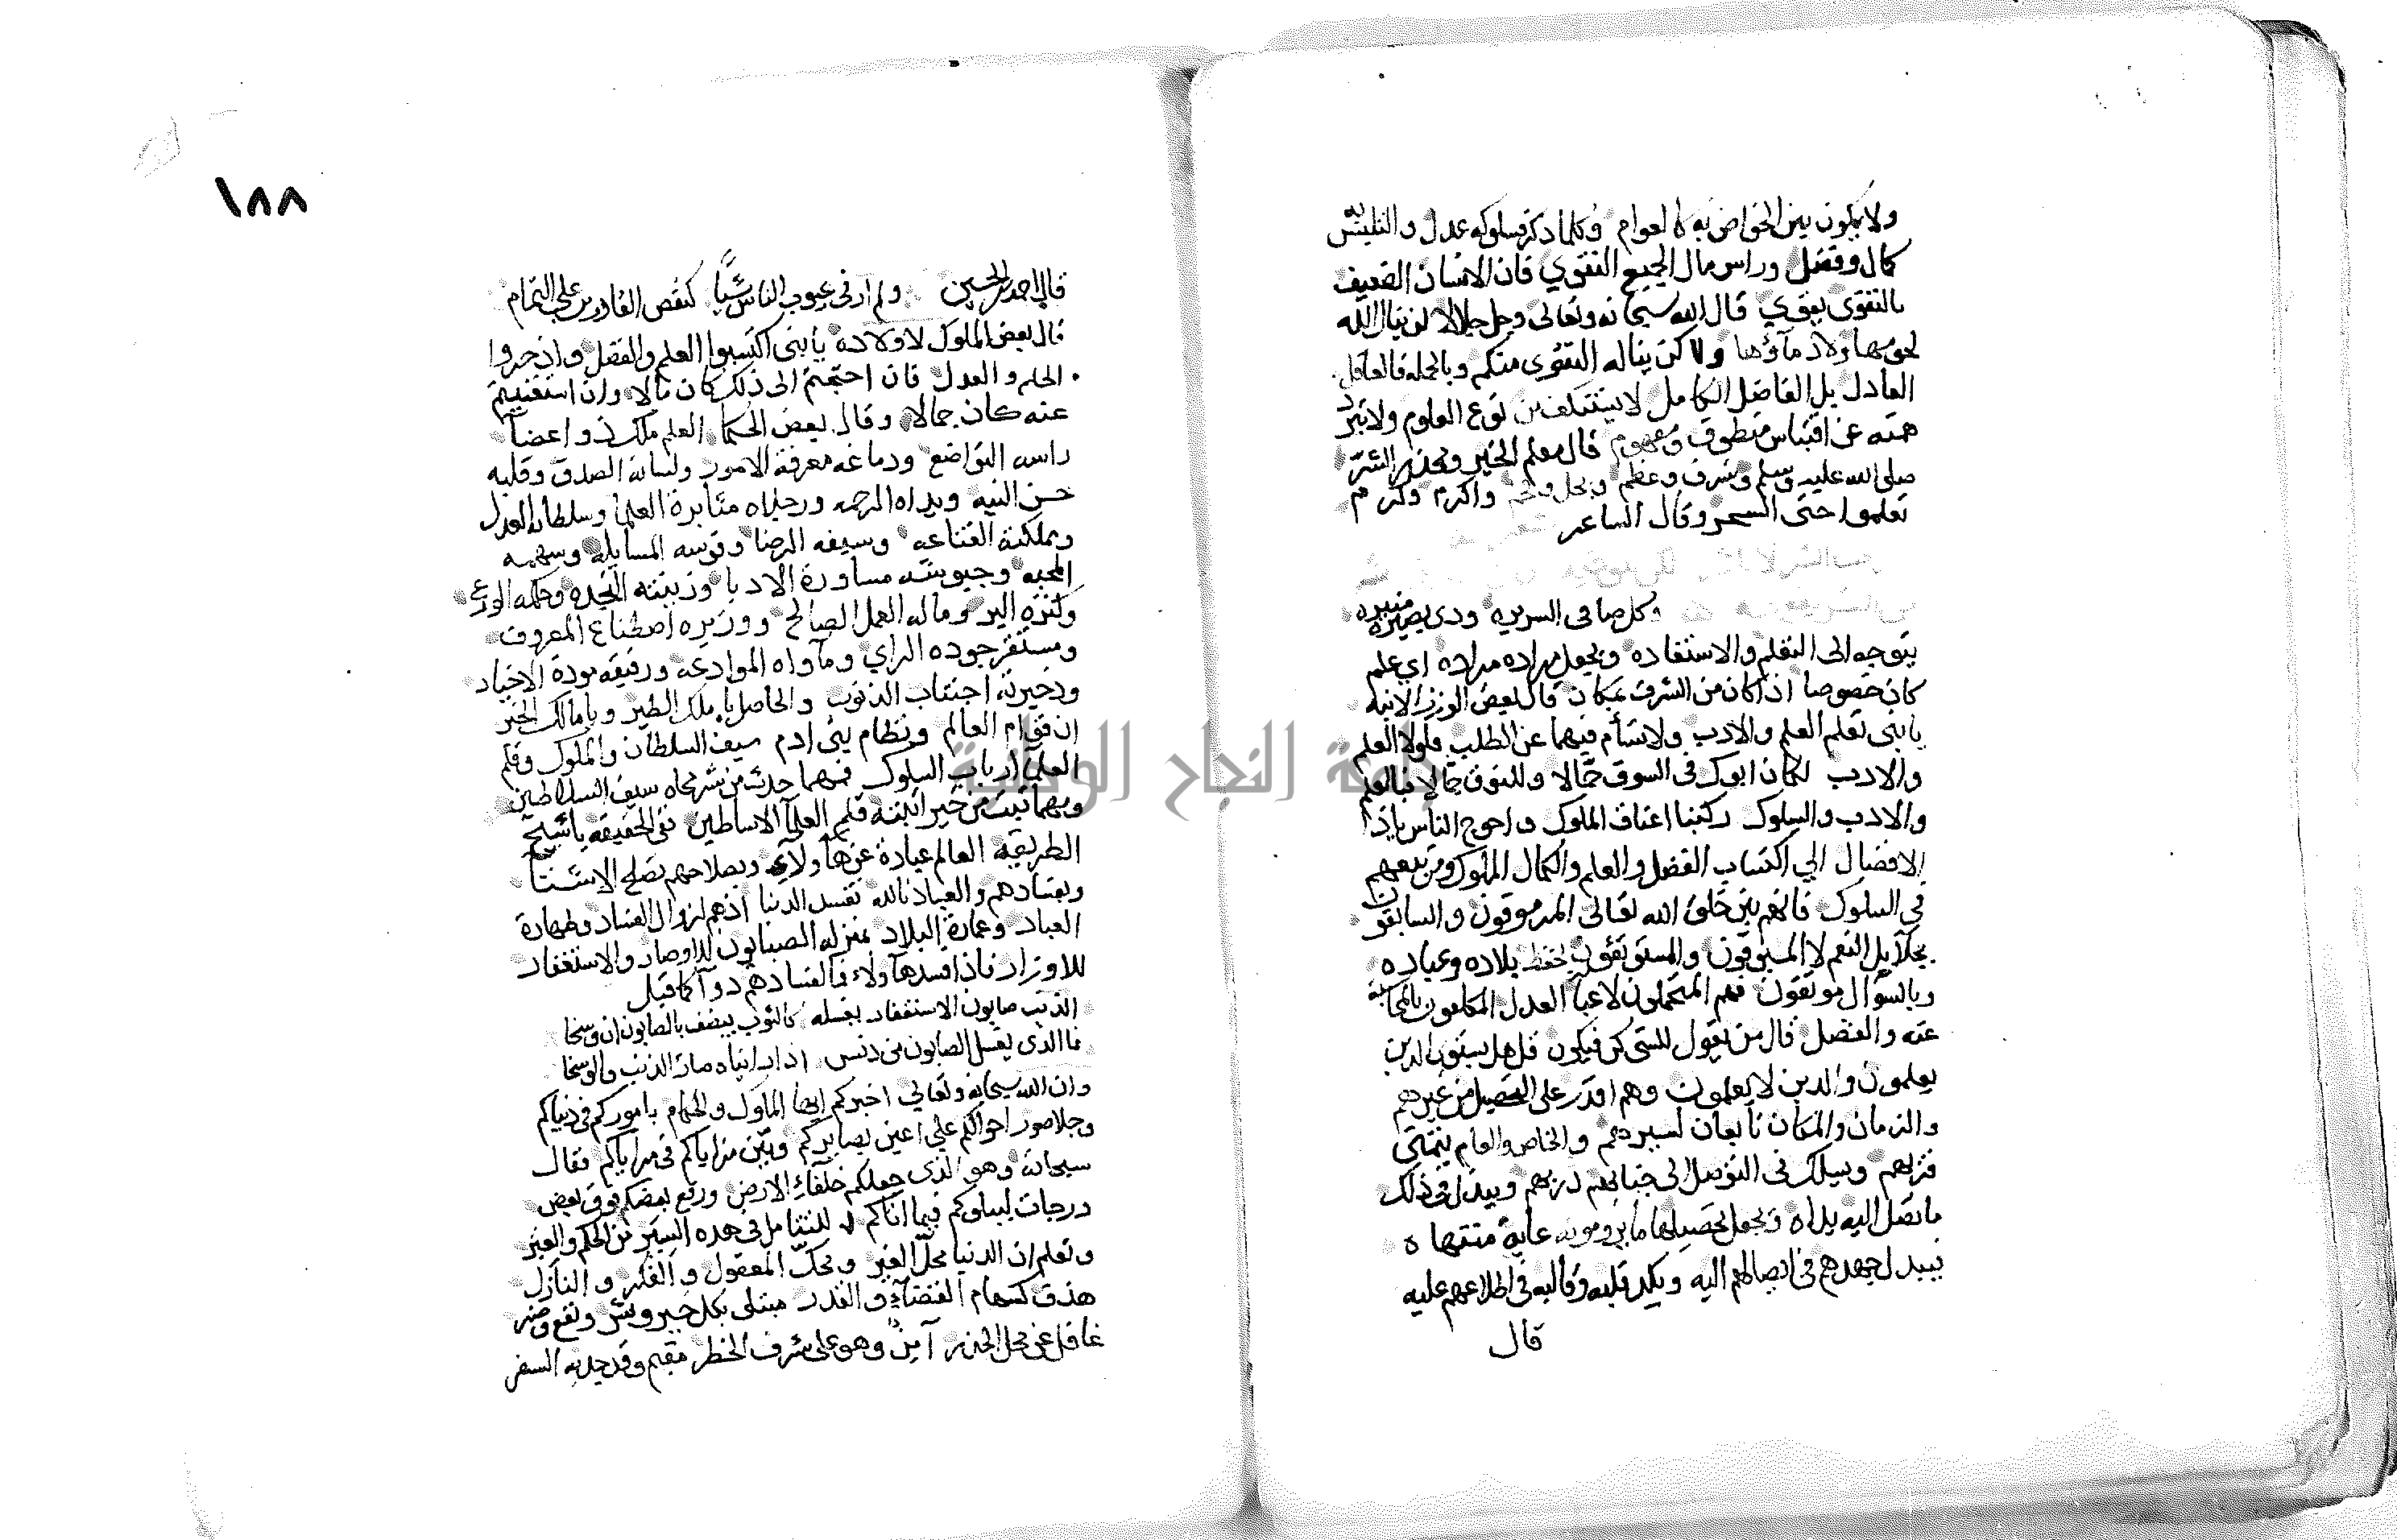 ولا يكون بين الخواص به كالعوام وكلما ذكر فسلوكه عدل والتلبس به
كمال وفضل وراس مال الجميع التقوي فان الانسان الضعيف
بالتقوى يقوي قال الله سبحانه وتعالى وجل جلالا لن ينال الله
لحومها ولا دماؤها ولاكن يناله التقوي منكم وبالجملة فالعاقل
العادل بل الفاضل الكامل لا يستنكف من نوع العلوم ولا تبرد
همته عن اقتباس منطوق ومفهوم قال معلم الخير ومحذر الشر
صلى الله عليه وسلم وشرف وعظم وبجل واكرم وكرم
تعلموا حتى السحر وقال الشاعر
وكل صافي السريره وذي بصيرة منيره
يتوجه الى التعلم والاستفاده ويجعل مراده مراده اي علم
كان خصوصا اذا كان من الشرف بمكان قال بعض الوزرا لابنه
يا بني تعلم العلم والادب ولا تسأم فيهما عن الطلب فلولا العلم
والادب لكان ابوك في السوق حمالا وللنوق جمالا فبالعلم
والادب والسلوك ركبنا اعناق الملوك واحوج الناس ياذا
الافضال الي اكتساب الفضل والعلم والكمال الملوك ومن يتبعهم
في السلوك فانهم بين خلق الله تعالى المرموقون والسابقون
بجلايل النعم لا المسبوقون والمستوثقون لحفظ بلاده وعباده
وبالسؤال موثقون فهم المتحملون لاعبا العدل المكلفون بالمحاسبة
عنه والفضل قال من يقول للشي كن فيكون قل هل يستوي الذين
يعلمون والذين لا يعلمون وهم اقدر على التحصيل من غيرهم
والزمان والمكان تابعان لسيرهم والخاص والعام يتمنى
قربهم ويسلك في التوصل الى جنابهم دربهم ويبذل في ذلك
ما تصل اليه يداه ويجعل تحصيلها ما يرومونه غاية متمناه
يبذل جهدهم في ايصالهم اليه ويكد قلبه وقالبه في اطلاعهم عليه
قال
١٨٨
قال احمد بن الحسين ولم ار في عيوب الناس شيئا كنقص القادرين على التمام
قال بعض الملوك لاولاده يا بني اكتسبوا العلم والفضل وادخروا
الحلم والعدل فان احتجتم الى ذلك كان مالا وان استغنيتم
عنه كان جمالا وقال بعض الحكما العلم ملك ذو اعضا
راسه التواضع ودماغه معرفة الامور ولسانه الصدق وقلبه
حسن النيه ويداه الرحمه ورجلاه مثابرة العلما وسلطانه العدل
ومملكته القناعه وسيفه الرضا وقوسه المسايله وسهمه
المحبه وجيوشه مشاورة الادبا وزينته النجده وحكمه الورع
وكنزه البر وماله العمل الصالح ووزيره اصطناع المعروف
ومستقره جوده الراي ومآواه الموادعه ورفيقه مودة الاخيار
وذخيرته اجتناب الذنوب والحاصل يا ملك الطير ويا مالك الخير
ان قوام العالم ونظام بني ادم سيف السلطان والملوك وقلم
العلما ارباب السلوك فمهما حدث من شر محاه سيف السلاطين
ومهما ثبت من خير اثبته قلم العلما الاساطين ففي الحقيقه يا شيخ
الطريقه العالم عبارة عن هآولاي وبصلاحهم تصلح الاشيآ
وبفسادهم والعياذ بالله تفسد الدنيا اذ هم لزوال الفساد وطهارة
العباد وعمارة البلاد بمنزلة الصابون للاوصار والاستغفار
للاوزار فاذا فسد هآولاء فما لفسادهم دوآ كما قيل
الذنب صابون الاستغفار يغسله كالثوب ينضف بالصابون ان وسخا
فما الذي يغسل الصابون من دنس اذا رايناه صار الذنب والوسخا
وان الله سبحانه وتعالي اخبركم ايها الملوك والحكام بامورکم في دنياكم
وجلا صور احوالكم علي اعين بصايركم وبين مزاياكم في مراياكم فقال
سبحانه وهو الذي جعلكم خلائف الارض ورفع بعضكم فوق بعض
درجات ليبلوكم فيما اتاكم لنتامل في هذه السير من الحكم والعبر
وتعلم ان الدنيا محل الغير ومحك المعقول والفكر والنازل
هدف لسهام القضآء والقدر مبتلى بكل خير وشر ونفع وضر
غافل عن محل الحذر آمن وهو على شرف الخطر مقيم وقد جد به السفر